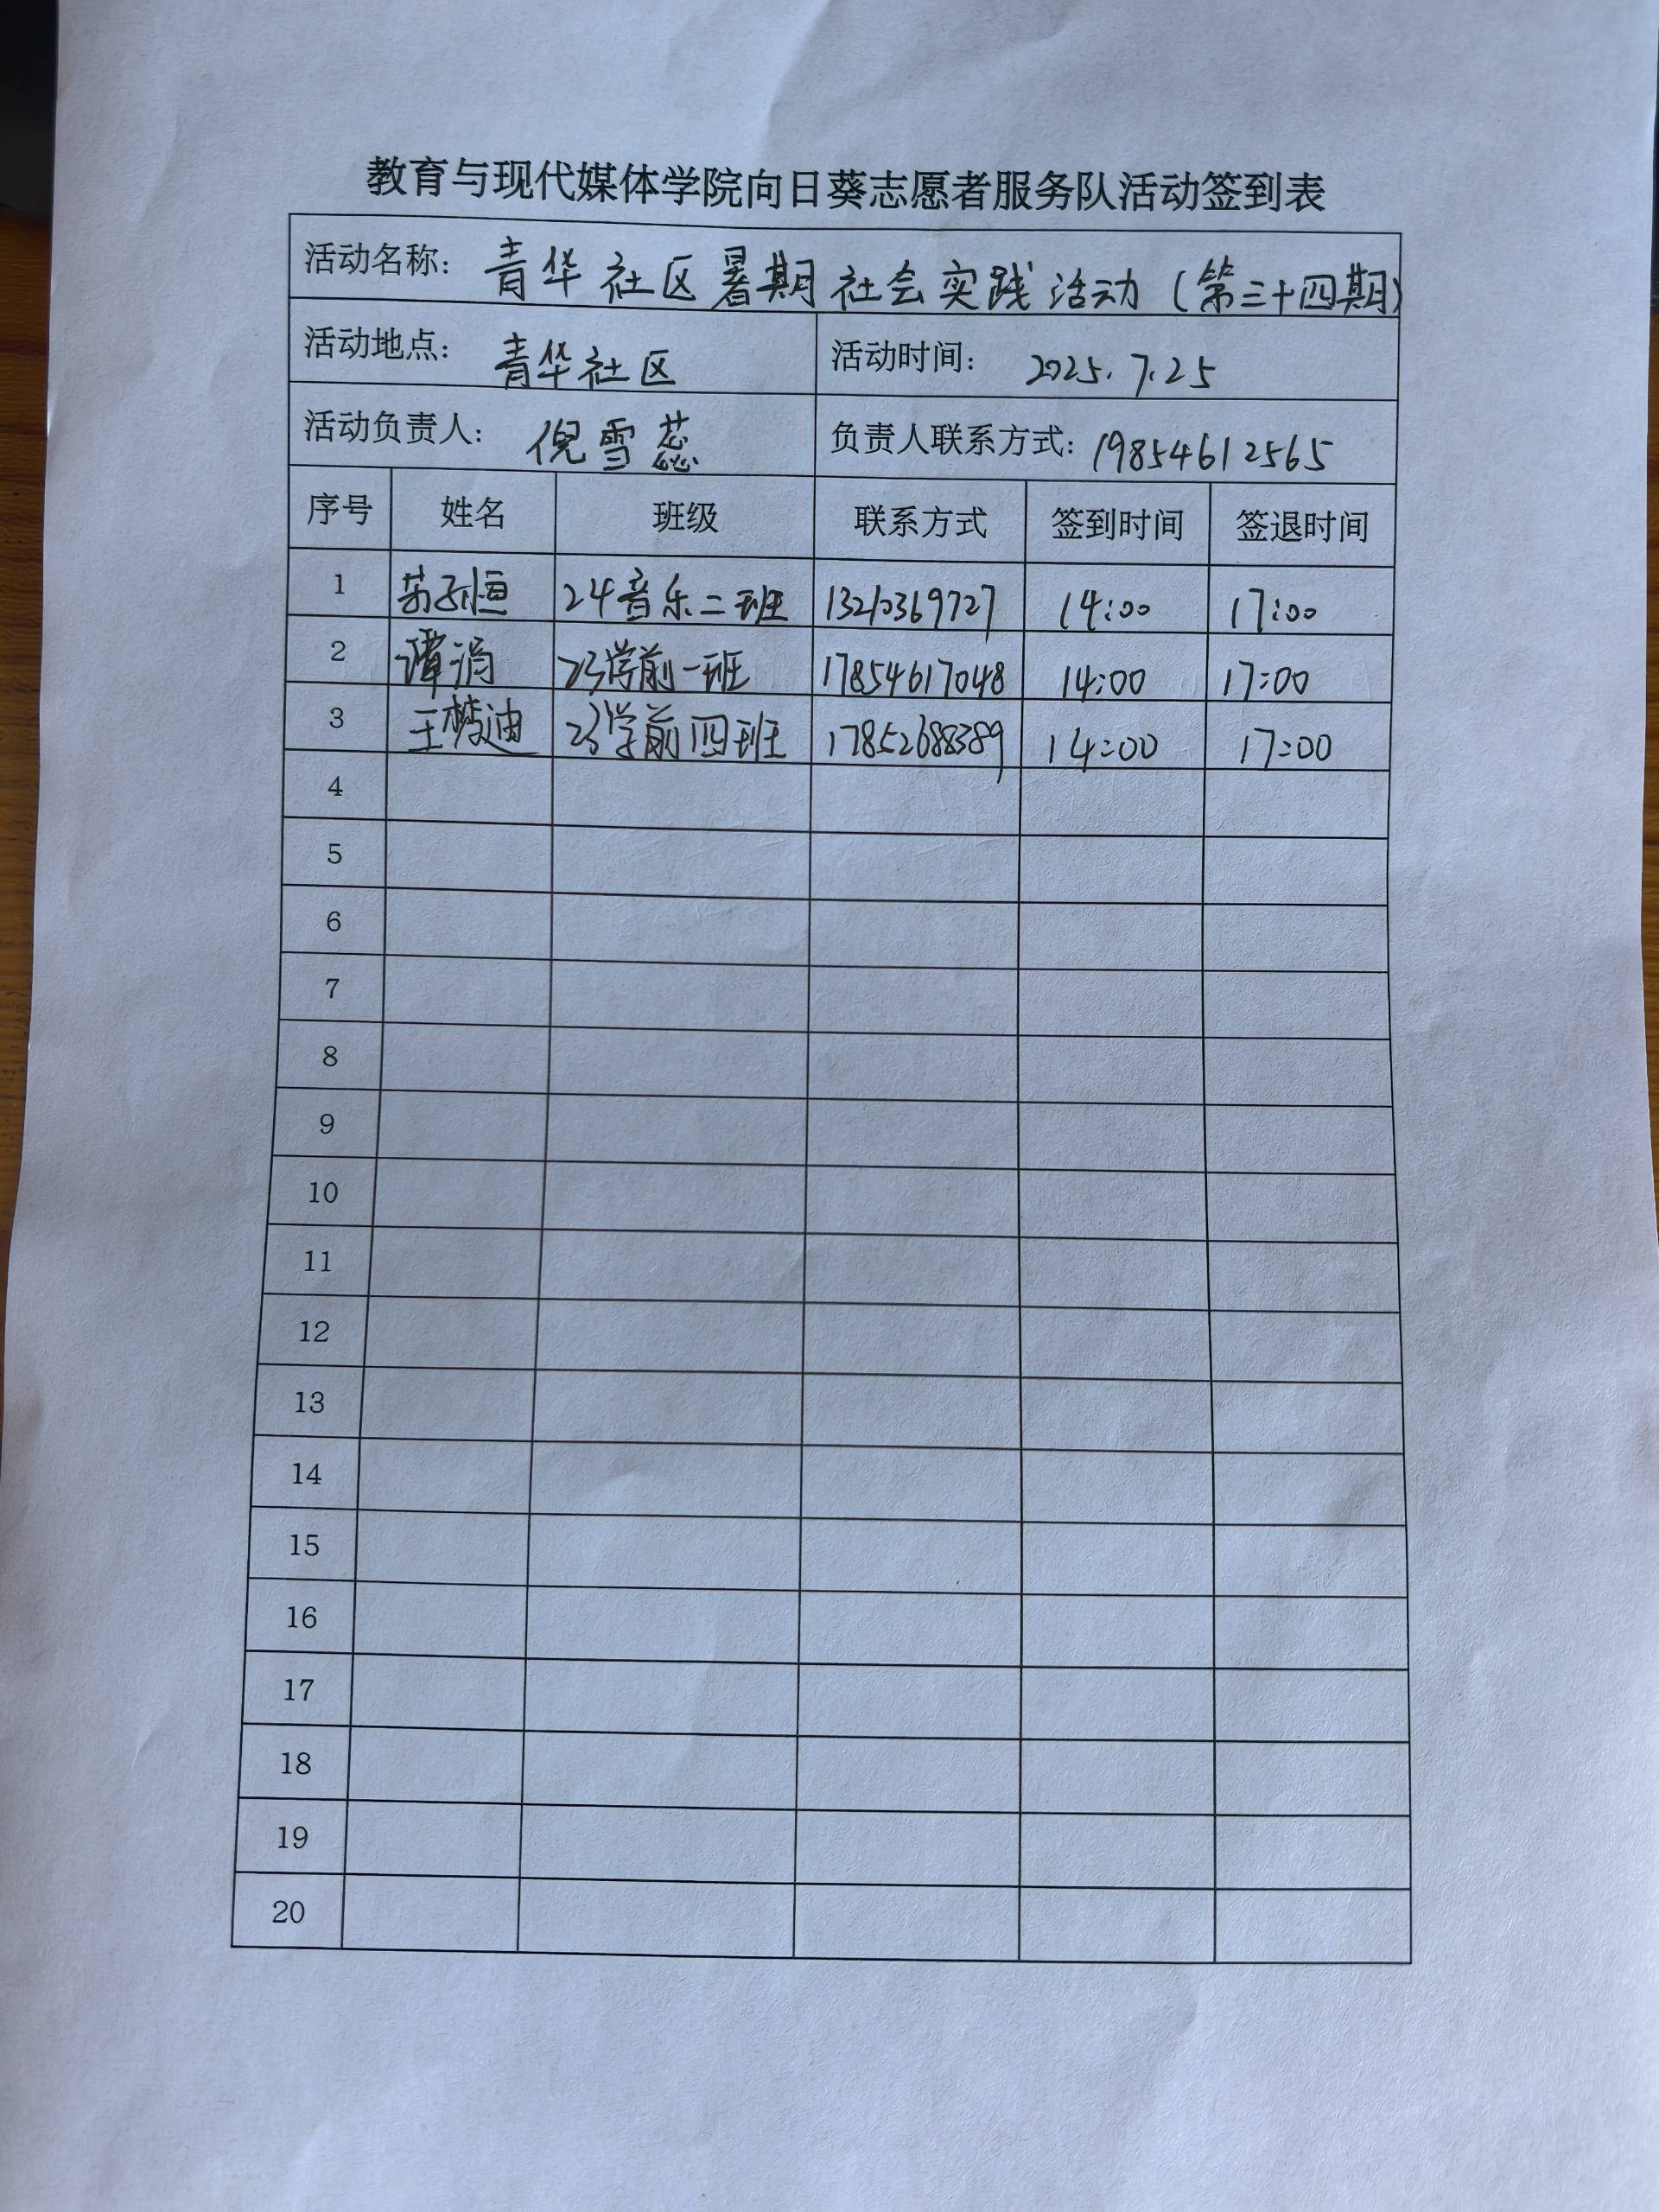 教育与现代媒体学院向日葵志愿者服务队活动签到表
活动名称： 青华社区暑期社会实践活动（第三十四期）
活动地点： 青华社区 活动时间： 2025.7.25
活动负责人： 倪雪蕊 负责人联系方式：19854612565
序号 姓名 班级 联系方式 签到时间 签退时间
1 苏子恒 24音乐二班 13210369727 14:00 17:00
2 谭涓 23学前一班 17854617048 14:00 17:00
3 王梦迪 23学前四班 17852688389 14:00 17:00
4
5
6
7
8
9
10
11
12
13
14
15
16
17
18
19
20